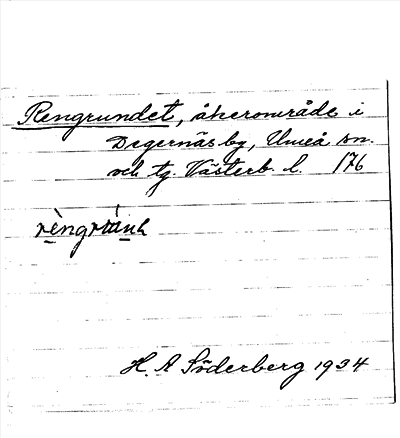 Rengrundet, åkerområde i
Degernäs by, Umeå sn.
och tg. Västerb. l. 176
H. A Söderberg 1934